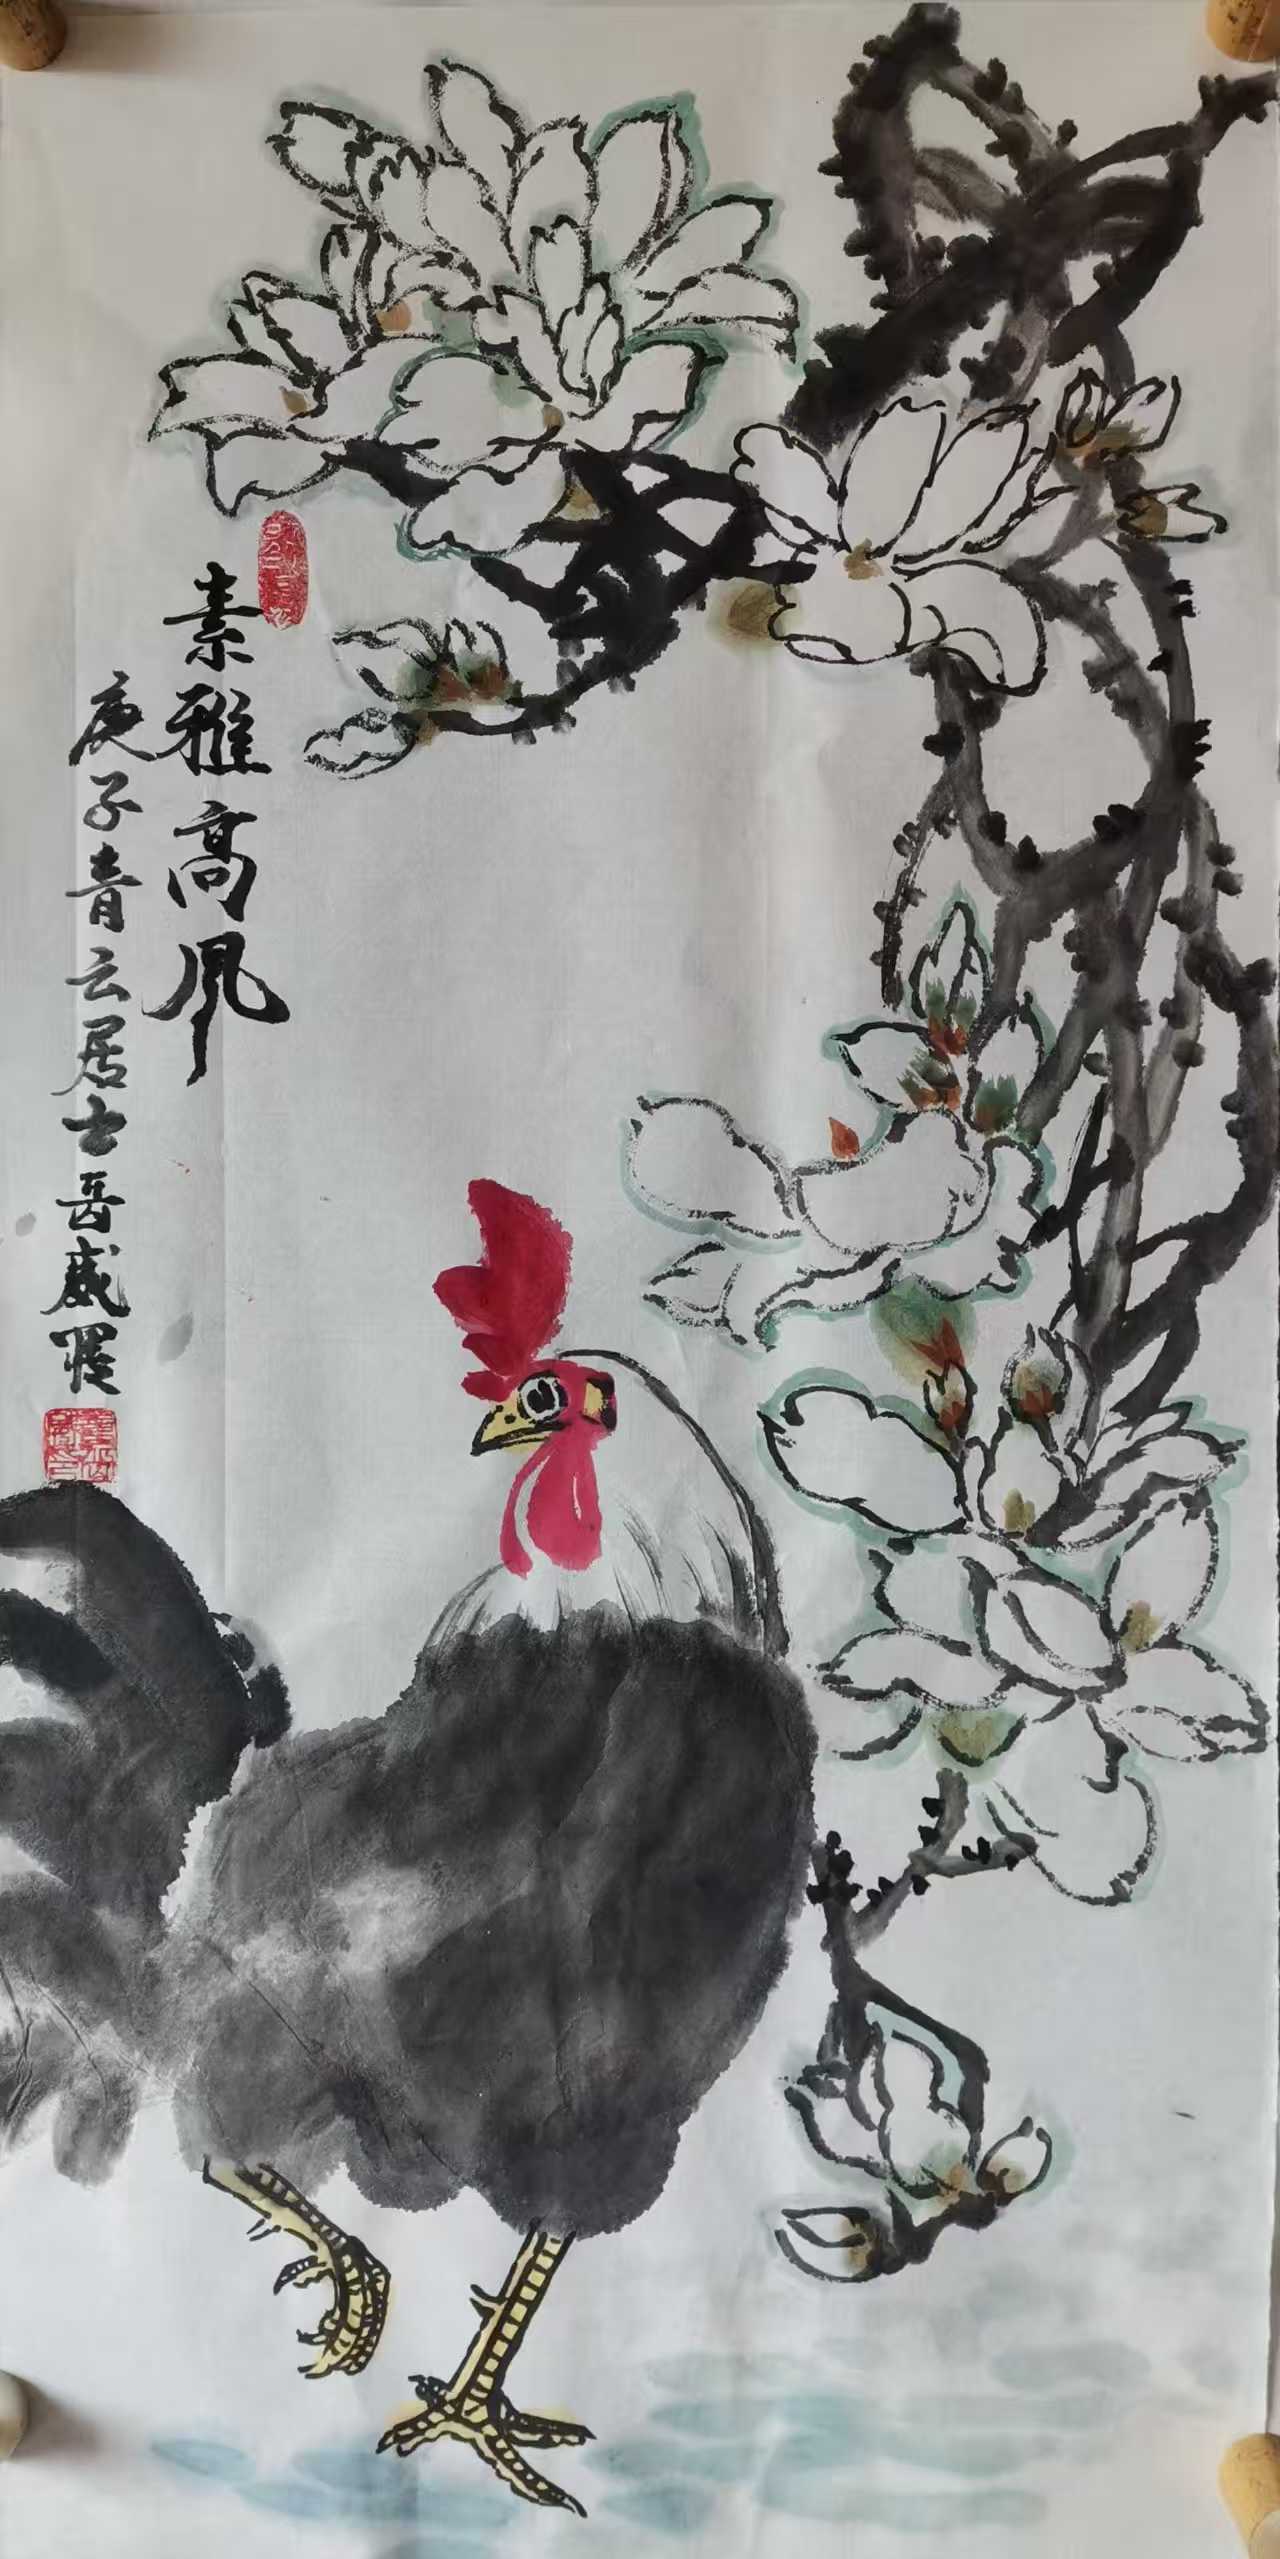 素雅高风
庚子青云居士岳威